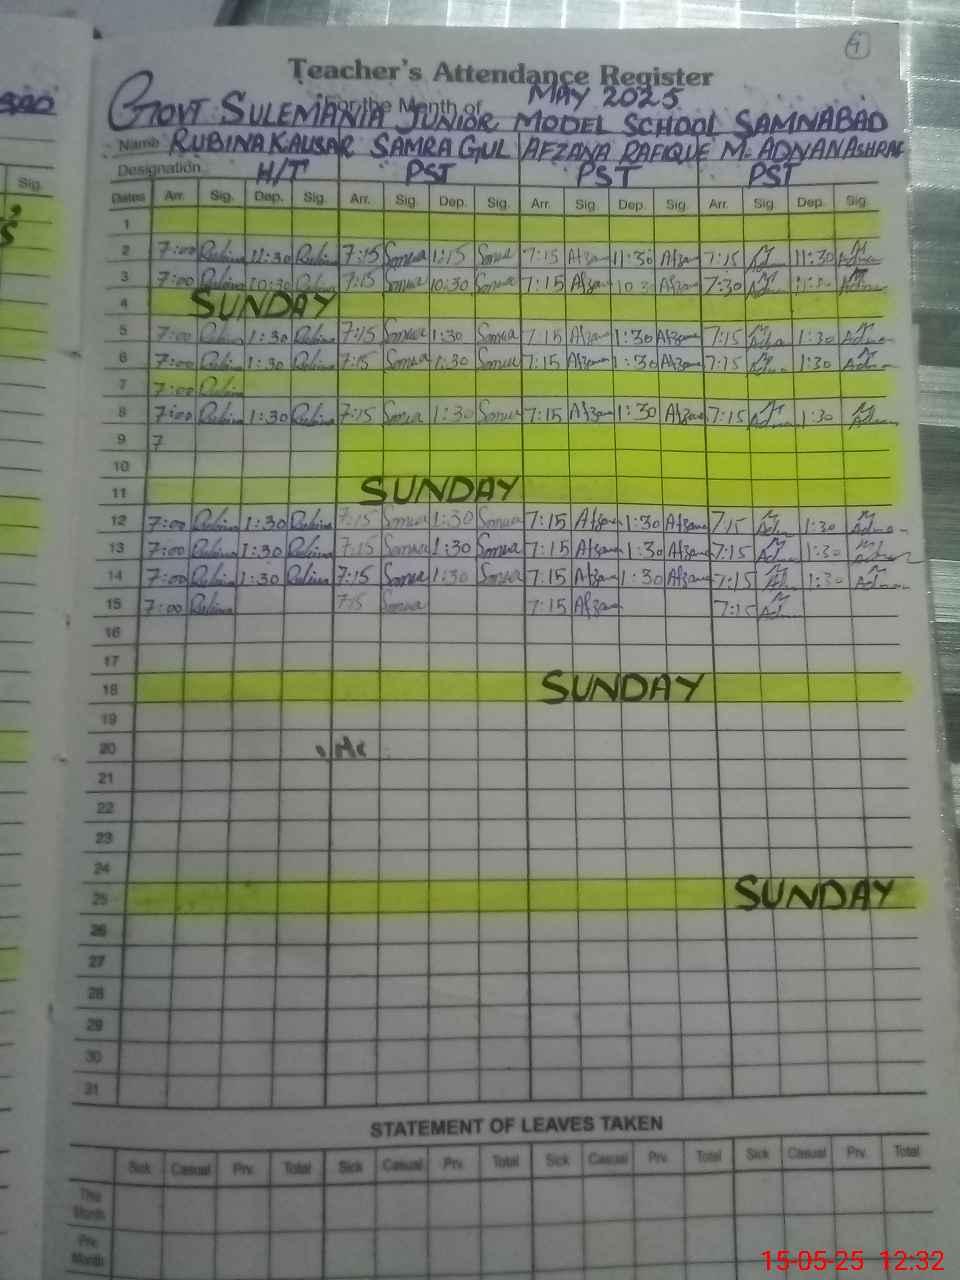 4
Teacher's Attendance Register
For the Month of MAY 2025
GOVT SULEMANIA JUNIOR MODEL SCHOOL SAMNABAD
Name RUBINA KAUSAR SAMRA GUL AFZANA RAFIQUE M. ADNAN ASHRAF
Designation H/T PST PST PST
Sig.
Dates Arr. Sig. Dep. Sig. Arr. Sig. Dep. Sig. Arr. Sig. Dep. Sig. Arr. Sig. Dep. Sig.
1
2 7:00 Rubina 11:30 Rubina 7:15 Samra 1:15 Samra 7:15 Afzana 11:30 Afzana 7:15 M Adnan 11:30 M Adnan
3 7:00 Rubina 10:30 Rubina 7:15 Samra 10:30 Samra 7:15 Afzana 10:3 Afzana 7:30 M Adnan M Adnan
4 SUNDAY
5 7:00 Rubina 1:30 Rubina 7:15 Samra 1:30 Samra 7:15 Afzana 1:30 Afzana 7:15 M Adnan 1:30 M Adnan
6 7:00 Rubina 1:30 Rubina 7:15 Samra 1:30 Samra 7:15 Afzana 1:30 Afzana 7:15 M Adnan 1:30 M Adnan
7 7:00 Rubina
8 7:00 Rubina 1:30 Rubina 7:15 Samra 1:30 Samra 7:15 Afzana 1:30 Afzana 7:15 M Adnan 1:30 M Adnan
9 7
10
11 SUNDAY
12 7:00 Rubina 1:30 Rubina 7:15 Samra 1:30 Samra 7:15 Afzana 1:30 Afzana 7:15 M Adnan 1:30 M Adnan
13 7:00 Rubina 1:30 Rubina 7:15 Samra 1:30 Samra 7:15 Afzana 1:30 Afzana 7:15 M Adnan 1:30 M Adnan
14 7:00 Rubina 1:30 Rubina 7:15 Samra 1:30 Samra 7:15 Afzana 1:30 Afzana 7:15 M Adnan 1:30 M Adnan
15 7:00 Rubina 7:15 Samra 7:15 Afzana 7:15 M Adnan
16
17
18 SUNDAY
19
20
21
22
23
24
25 SUNDAY
26
27
28
29
30
31
STATEMENT OF LEAVES TAKEN
Sick Casual Prv. Total Sick Casual Prv. Total Sick Casual Prv. Total Sick Casual Prv. Total
This Month
Pre. Month
15-05-25 12:32